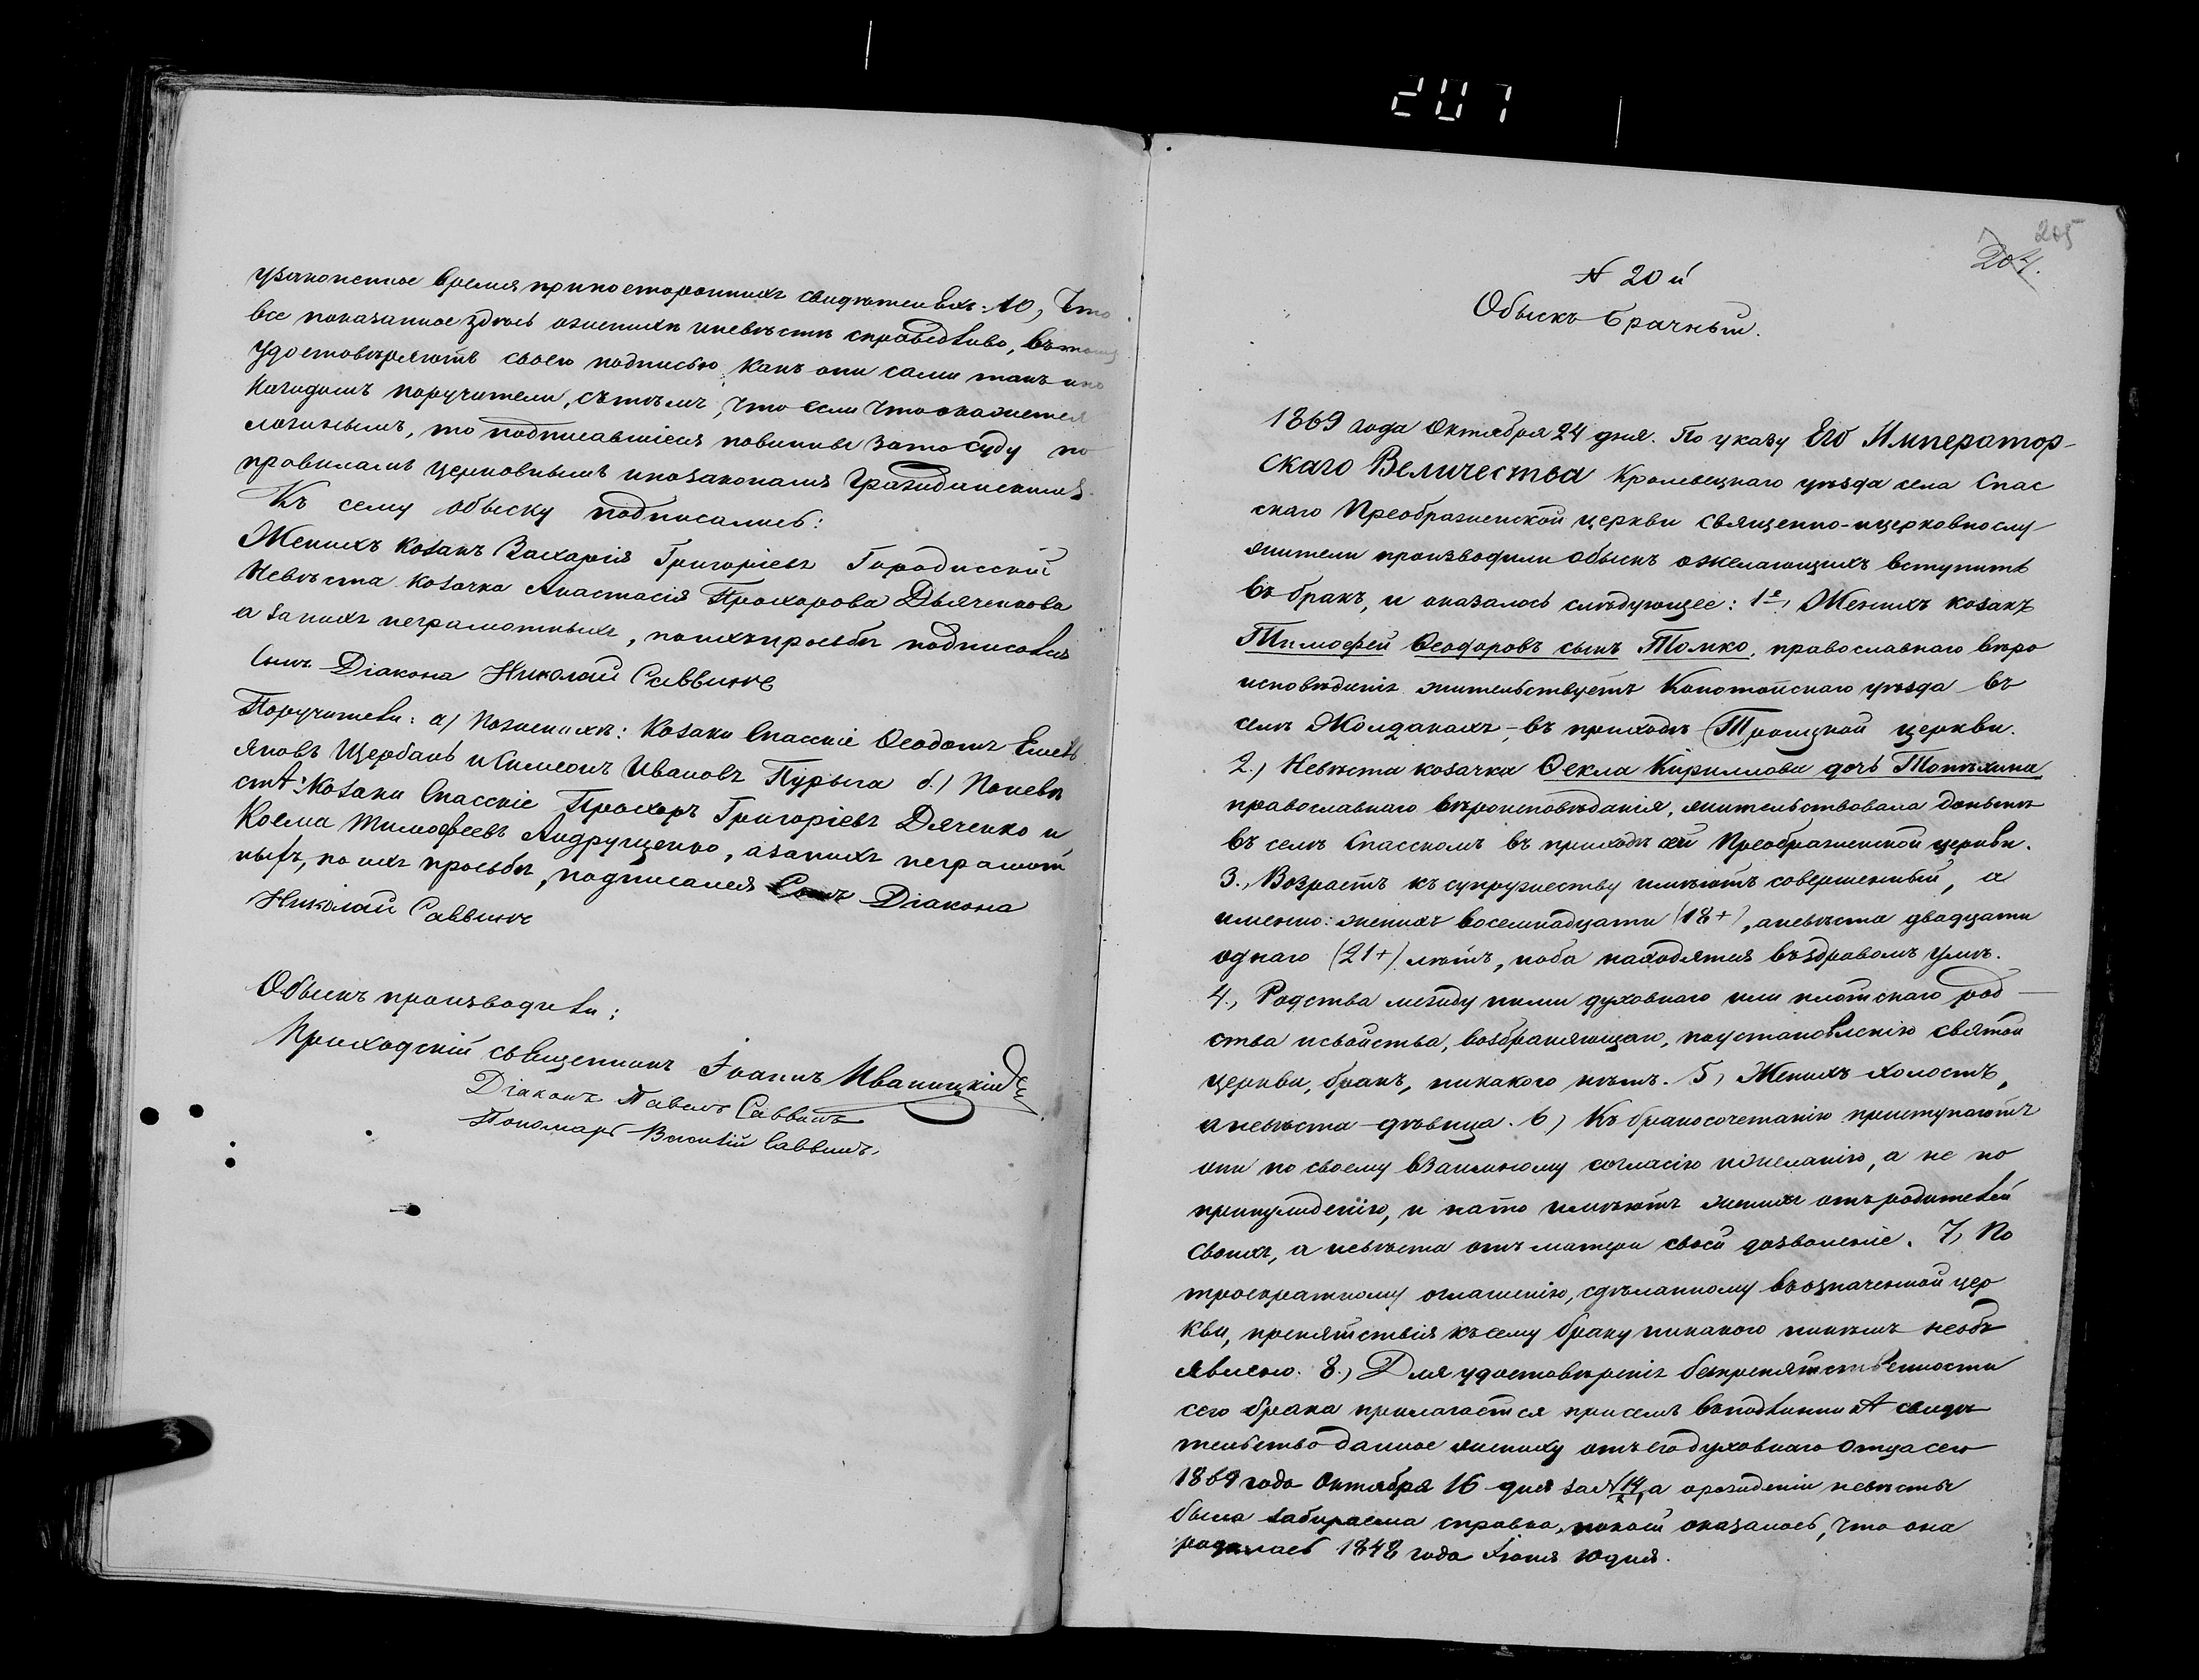 207
узаконенное время при постороннихъ свидѣтеляхъ. 10, Что
все показанное здѣсь о женихѣ и невѣстѣ справедливо, въ томъ
удостовѣряютъ своею подписью какъ они сами такъ и по
каждомъ поручители, съ тѣмъ, что если что окажется
ложнымъ, то подписавшіеся повинны за то суду по
правиламъ церковнымъ и по законамъ гражданскимъ.
Къ сему обыску подписались:
Женихъ козакъ Захарія Григоріевъ Городисскій
Невѣста козачка Анастасія Прохорова Дьяченкова
а за нихъ неграмотныхъ, по ихъ просьбѣ подписался
сынъ Діакона Николай Саввичъ
Поручители: а) По женихѣ: Козаки Спасскіе Ѳеодотъ Емель
яновъ Щербакъ и Симеонъ Ивановъ Пурыга б.) По невѣ
стѣ: Козаки Спасскіе Прохоръ Григоріевъ Дяченко и
Косма Тимофеевъ Андрущенко, а за нихъ неграмот
ныхъ, по ихъ просьбѣ, подписался Сынъ Діакона
Николай Саввичъ
Обыскъ производили:
Приходскій священникъ Іоаннъ Иваницкій
Діаконъ Павелъ Саввичъ
Пономарь Василій Саввичъ.
205
204.
N 20й
Обыскъ брачный.
1869 года Октября 24 дня. По указу Его Император-
скаго Величества Кролевецкаго уѣзда села Спас
скаго Преображенской церкви священно-и церковнослу
жители производили обыскъ о желающихъ вступить
въ бракъ, и оказалось слѣдующее: 1е, Женихъ козакъ
Тимофей Ѳеодоровъ сынъ Томко, православнаго вѣро
исповѣданія жительствуетъ Конотопскаго уѣзда въ
селѣ Жолдакахъ, въ приходѣ Троицкой церкви.
2.) Невѣста козачка Ѳекла Кириллова дочь
православнаго вѣроисповѣданія, жительствовала донынѣ
въ селѣ Спасскомъ въ приходѣ сей Преображенской церкви.
3., Возрастъ къ супружеству имѣютъ совершенный, а
именно: женихъ восемнадцати (18+), а невѣста двадцати
однаго (21+) лѣтъ, и оба находятся въ здравомъ умѣ.
4., Родства между ними духовнаго или плотскаго род-
ства и свойства, возбраняющаго, по установленію святой
церкви, бракъ, никакого нѣтъ. 5, Женихъ холостъ,
а невѣста дѣвица. 6) Къ бракосочетанію приступаютъ
они по своему взаимному согласію и желанію, а не по
принужденію, и на то имѣютъ женихъ отъ родителей
своихъ, а невѣста отъ матери своей дозволеніе. 7, По
троекратному оглашенію, сдѣланному въ означенной цер
кви, препятствія къ сему браку никакого никѣмъ необъ
явлено. 8.) Для удостовѣренія безпрепятственности
сего брака прилагается при семъ въ подлинникѣ свидѣ
тельство данное жениху отъ его духовнаго отца сего
1869 года Октября 16 дня за N 14, а о рожденіи невѣсты
была забираема справка, по коей оказалось, что она
родилась 1848 года Іюня 10 дня.